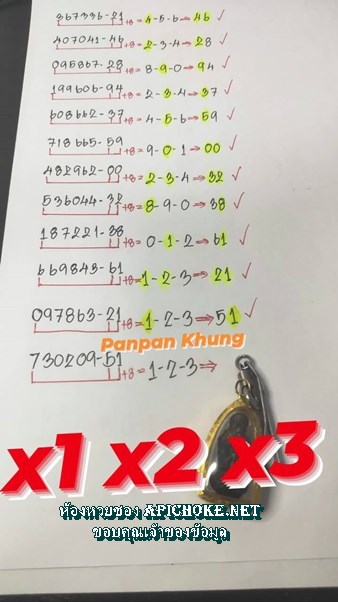 367336-21+8=4-5-6⇒46 ✓
407041-46+8=2-3-4⇒28 ✓
095867-28+8=8-9-0⇒94 ✓
199606-94+8=2-3-4⇒37 ✓
608662-37+8=4-5-6⇒59 ✓
718665-59+8=9-0-1→00 ✓
482962-00+8=2-3-4⇒32 ✓
536044-32+8=8-9-0⇒38 ✓
187221-38+8=0-1-2⇒61 ✓
669843-61+8=1-2-3⇒21 ✓
097863-21+8=1-2-3⇒51 ✓
Panpan Khung
730209-51+8=1-2-3⇒
x1 x2 x3
ห้องหวยซอง APICHOKE.NET
ขอบคุณเจ้าของข้อมูล